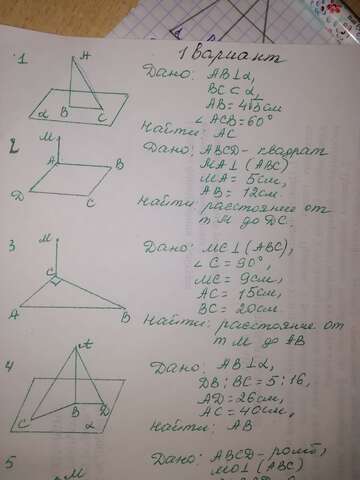 1 Вариант
1
A
B
C
α
Дано: AB⊥α,
BC⊂α,
AB = 4√3см
∠ACB = 60°
Найти: AC
2
M
A
B
D
C
Дано: ABCD - квадрат
MA⊥(ABC)
MA = 5см,
AB = 12см.
Найти: расстояние от
т. M до DC.
3
M
C
A
B
Дано: MC⊥(ABC),
∠C = 90°,
MC = 9см,
AC = 15см,
BC = 20см.
Найти: расстояние от
т M до AB
4
A
C
B
D
α
Дано: AB⊥α,
DB : BC = 5 : 16,
AD = 26см,
AC = 40см,
Найти: AB
5
M
Дано: ABCD - ромб,
MO⊥(ABC)